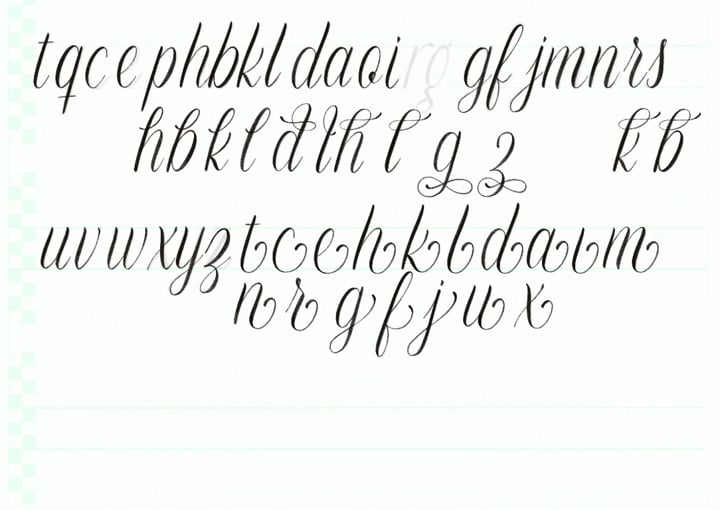 tqcephbkldaoi rg gfjmnrs
hbkldlhl g z k b
uvwxyztcehkldaım
nr gfjux